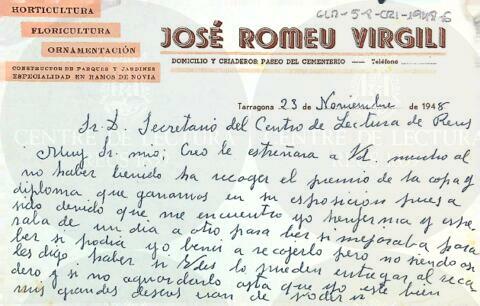 HORTICULTURA
FLORICULTURA
ORNAMENTACIÓN
CONSTRUCTOR DE PARQUES Y JARDINES
ESPECIALIDAD EN RAMOS DE NOVIA
CLR-5-8-CRI-1948-6
JOSÉ ROMEU VIRGILI
DOMICILIO Y CRIADEROS: PASEO DEL CEMENTERIO — Teléfono
Tarragona 23 de Noviembre de 1948
Sr. D. Secretario del Centro de Lectura de Reus
Muy Sr. mio; Creo le estreñara a Vd. mucho al
no haber benido ha recoger el premio de la copa y
diploma que ganamos en su esposicion pues a
sido devido que me encuentro yo henfermo y espe
raba de un dia a otro para ber si mejoraba para
ber si podia yo benir a recojerlo pero no siendo asi
les digo haber si Vdes lo pueden entregar al reca
dero y si no aguardarlo asta que yo este bien
mis grandes deseos eran de podir
CENTRE DE LECTURA